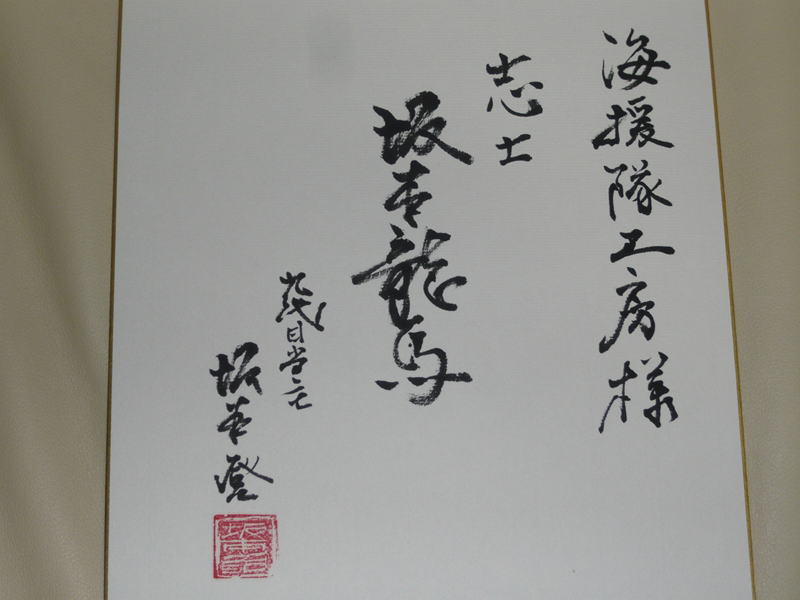 海援隊工房様
志士
坂本龍馬
九代目当主
坂本登